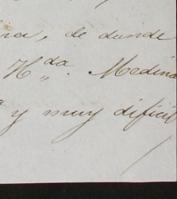 ra, de donde
H.da Medina
y muy dificil